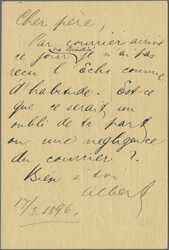 Cher pere,
Par courrier arrivé
ce jour je n'ai pas
reçu l'Echo comme
d'habitude. Est-ce
que ce serait un
oubli de ta part
ou une negligence
du courrier ?.
Bien a toi
Albert
17/3. 1896.